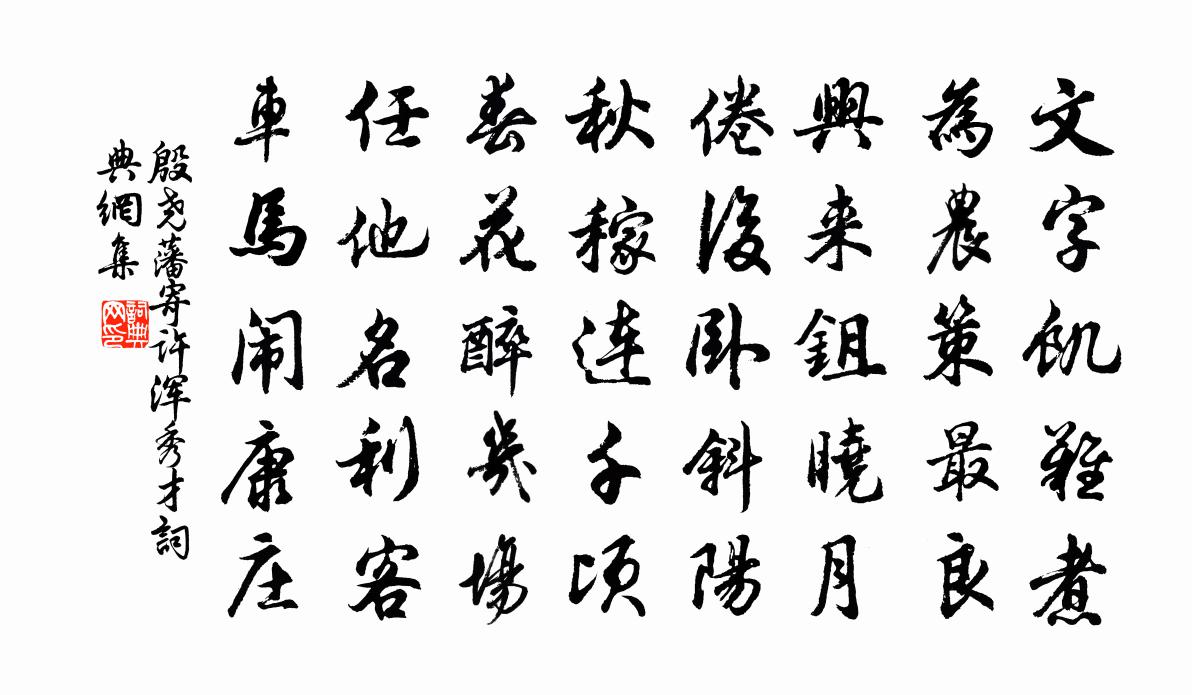 文字飢難煮
為農策最良
興来鉏曉月
倦後臥斜陽
秋稼連千頃
春花醉幾場
任他名利客
車馬闹康庄
殷尧藩寄许浑秀才詞
典網集
詞典
网印